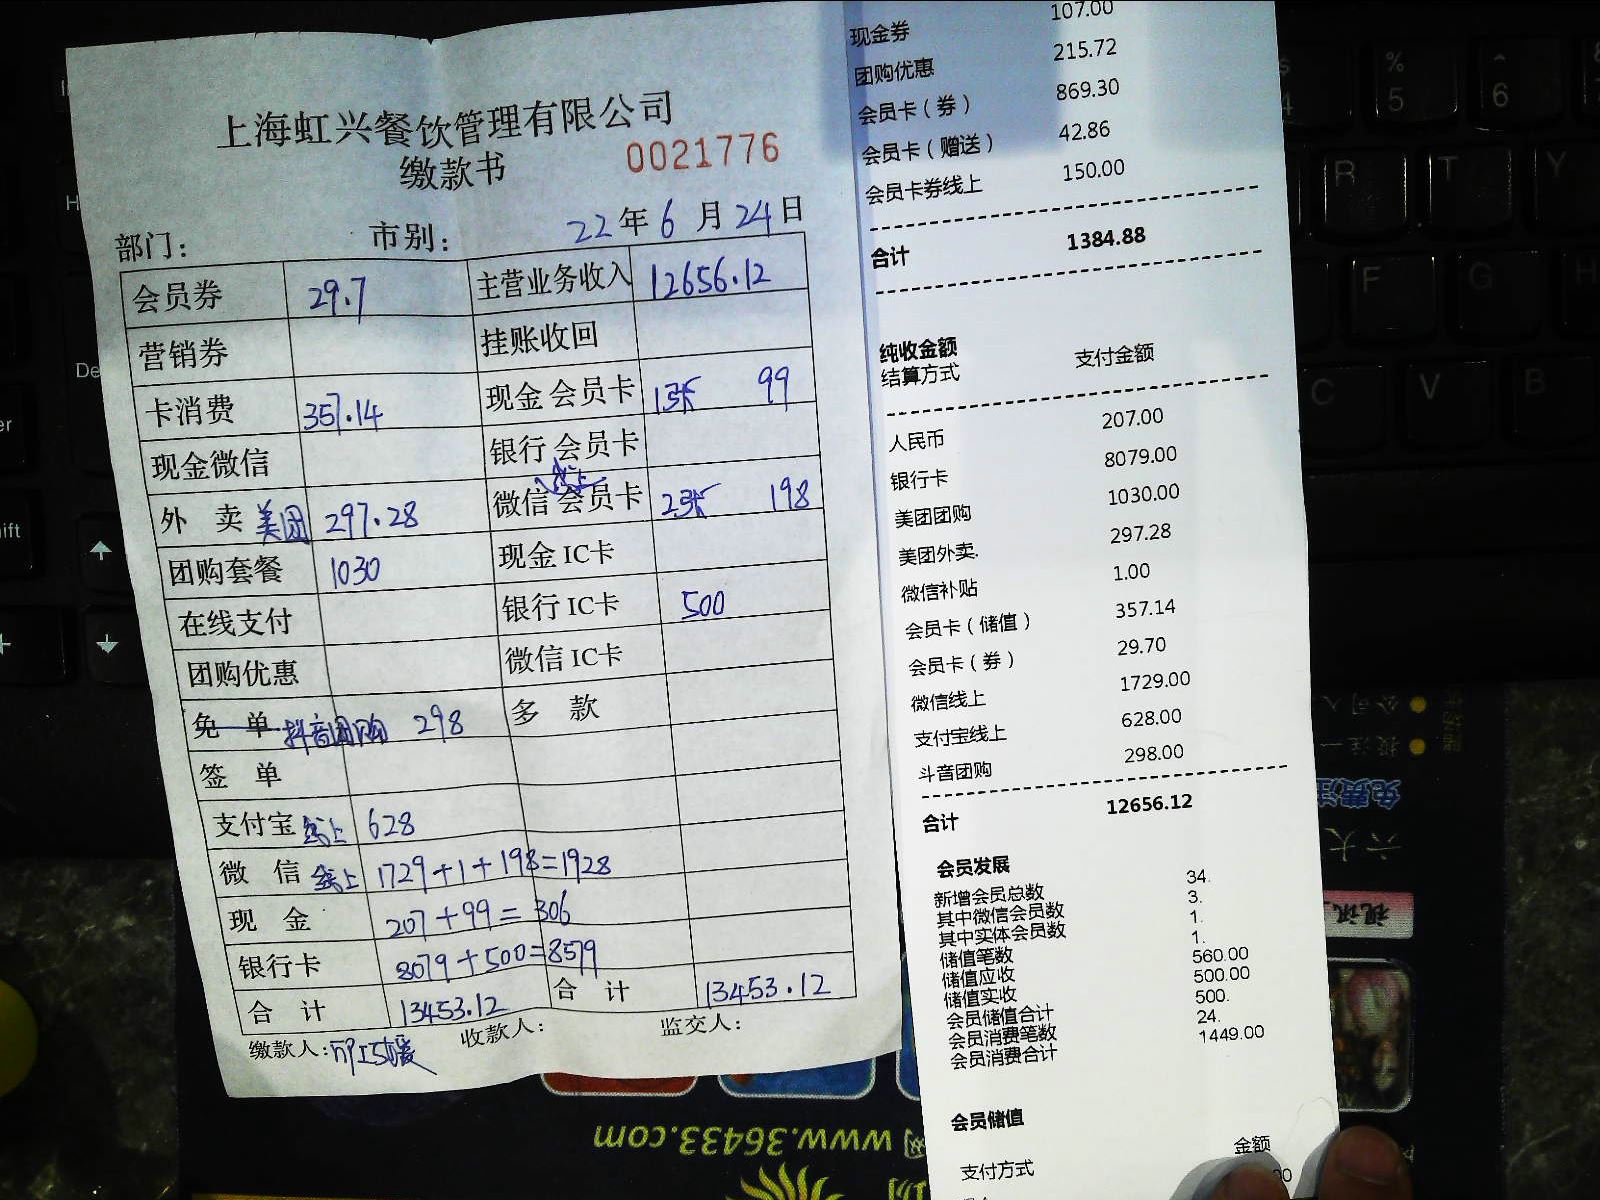 上海虹兴餐饮管理有限公司
缴款书 0021776
部门： 市别： 22年6月24日
会员券 29.7 主营业务收入 12656.12
营销券 挂账收回
卡消费 357.14 现金会员卡 1张 99
现金微信 银行会员卡
外卖美团 297.28 微信线上会员卡 2张 198
团购套餐 1030 现金IC卡
在线支付 银行IC卡 500
团购优惠 微信IC卡
免单 抖音团购 298 多款
签单
支付宝线上 628
微信线上 1729+1+198=1928
现金 207+99=306
银行卡 8079+500=8579
合计 13453.12 合计 13453.12
缴款人： 收款人： 监交人：
现金券 107.00
团购优惠 215.72
会员卡（券） 869.30
会员卡（赠送） 42.86
会员卡券线上 150.00
合计 1384.88
纯收金额
结算方式 支付金额
人民币 207.00
银行卡 8079.00
美团团购 1030.00
美团外卖. 297.28
微信补贴 1.00
会员卡（储值） 357.14
会员卡（券） 29.70
微信线上 1729.00
支付宝线上 628.00
斗音团购 298.00
合计 12656.12
会员发展
新增会员总数 34.
其中微信会员数 3.
其中实体会员数 1.
储值笔数 1.
储值应收 560.00
储值实收 500.00
会员储值合计 500.
会员消费笔数 24.
会员消费合计 1449.00
会员储值
支付方式 金额
www.36433.com